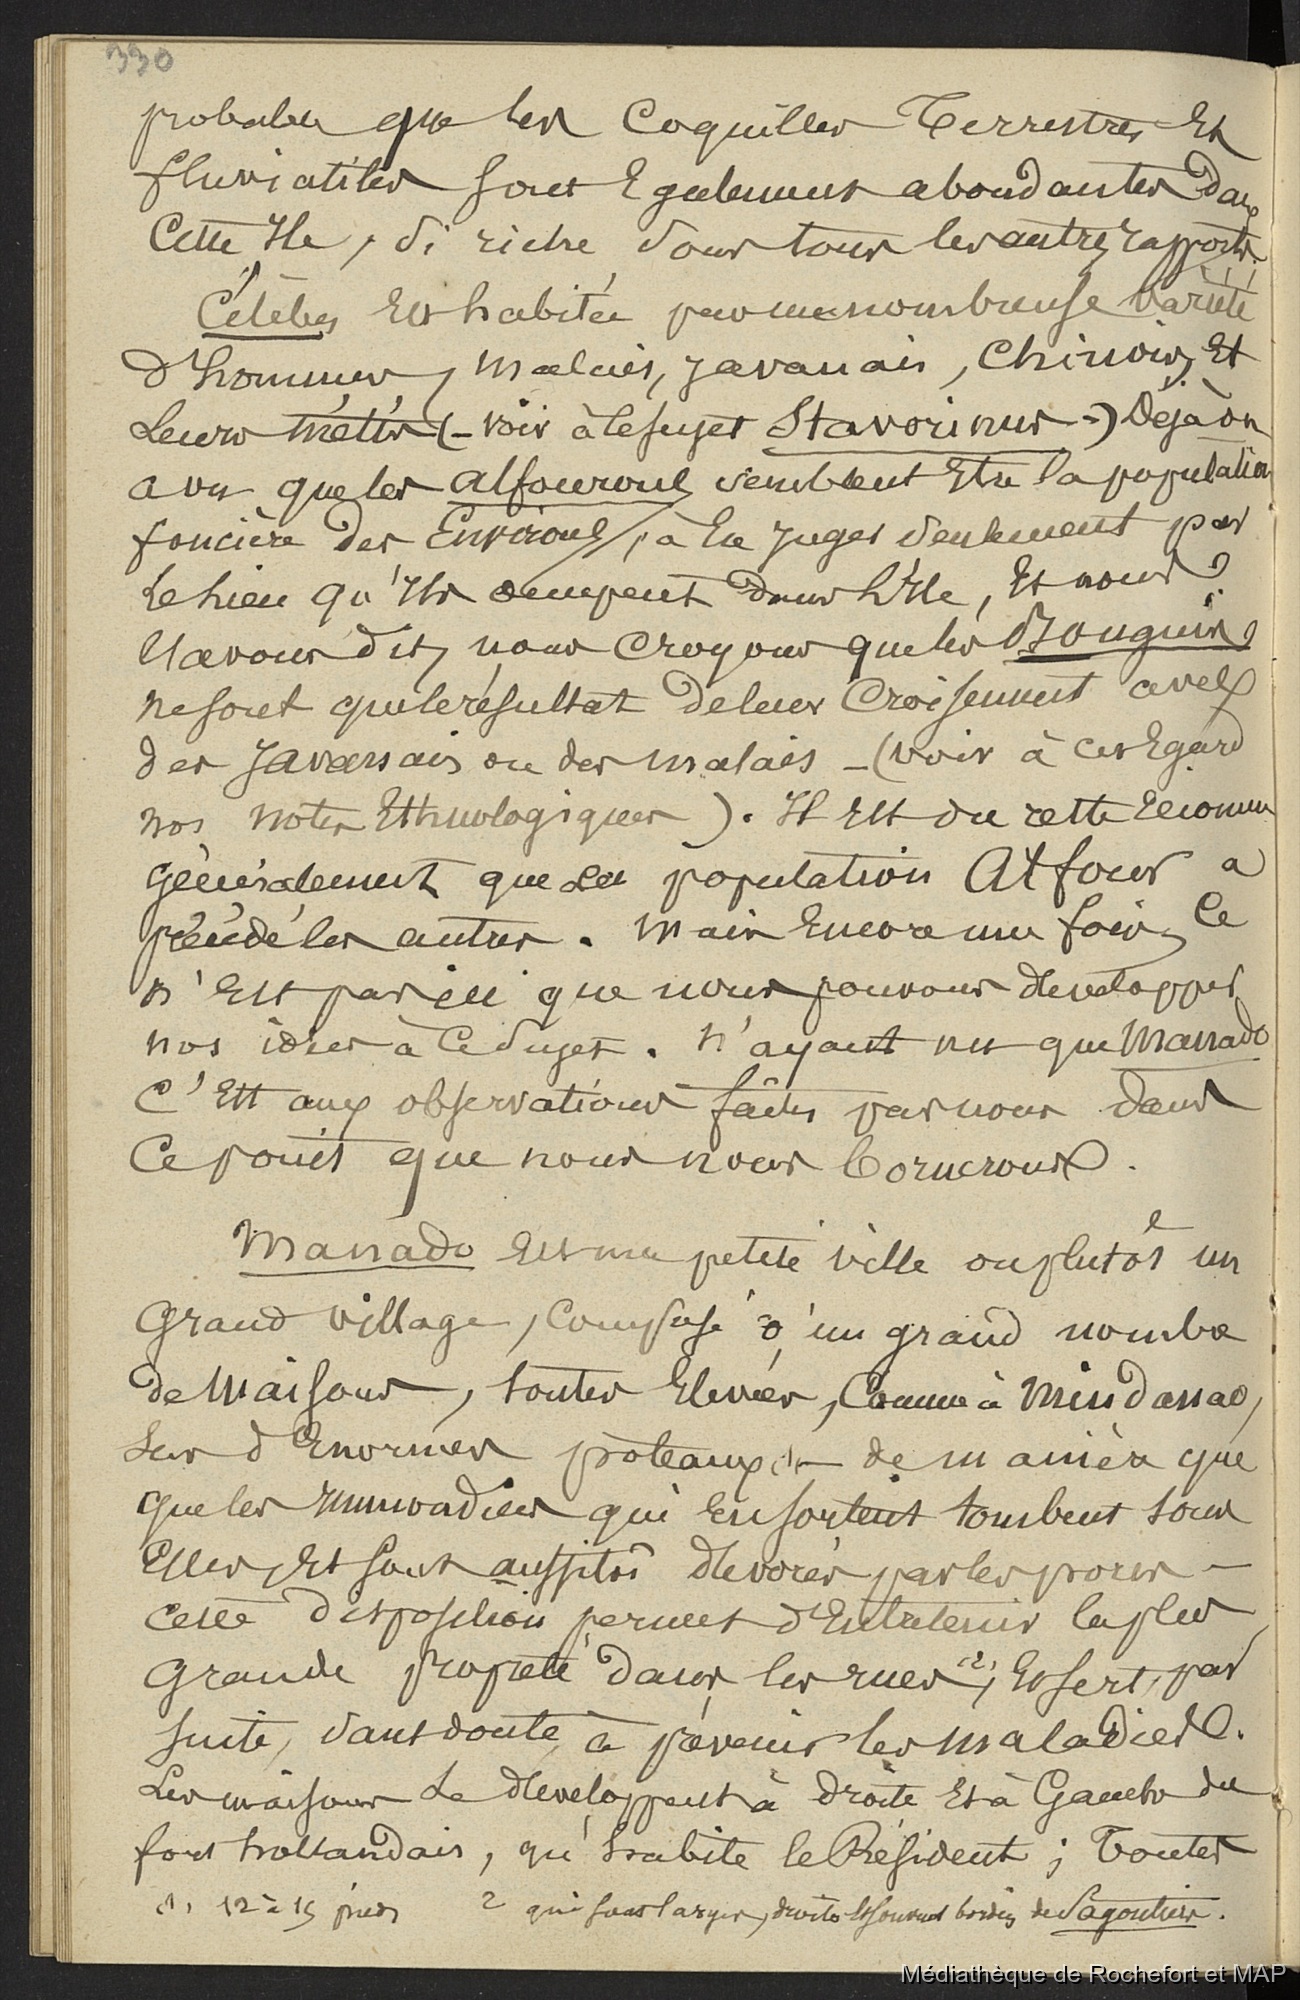 330
probable que les Coquilles Terrestres Et
fluviatiles sont Egalement abondantes dans
Cette Ile, si riche sous tous les autres rapports.
Célèbes Est habitée par une nombreuse variété
d'hommes, Malais, Javanais, Chinois, Et
Leurs métis (- voir à ce sujet Stavorinus -) Déjà on
a vu que les alfourous semblent Etre la population
foncière des Environs, à En juger seulement par
le lieu qu'Ils occupent dans l'Ile, Et nous
l'avons dit, nous Croyons que les Bouguis
ne sont que le résultat de leur Croisement avec
des Javanais ou des malais - (voir à cet Egard
nos notes Ethnologiques). Il Est du reste reconnu
généralement que la population Alfour a
précédé les autres. Mais Encore une fois, Ce
n'Est pas ici que nous pouvons développer
nos idées à Ce sujet. N'ayant vu que Manado
C'Est aux observations faites par nous dans
Ce point que nous nous bornerons.
Manado Est une petite ville ou plutôt un
Grand village, Composé d'un grand nombre
de Maisons, toutes Elevées, Comme à Mindanao,
sur d'Enormes poteaux (1) - de manière que
que les immondices qui En sortent tombent sous
Elles, Et sont aussitôt dévorés par les porcs -
cette disposition permet d'Entretenir la plus
Grande propreté dans les rues (2), Et sert, par
suite, sans doute, à prévenir les maladies.
Les maisons se développent à droite Et à Gauche du
fort hollandais, qu'habite le Résident ; Toutes
1. 12 à 15 pieds 2 qui sont larges, droites Et souvent bordées de Sagoutiers.
Médiathèque de Rochefort et MAP